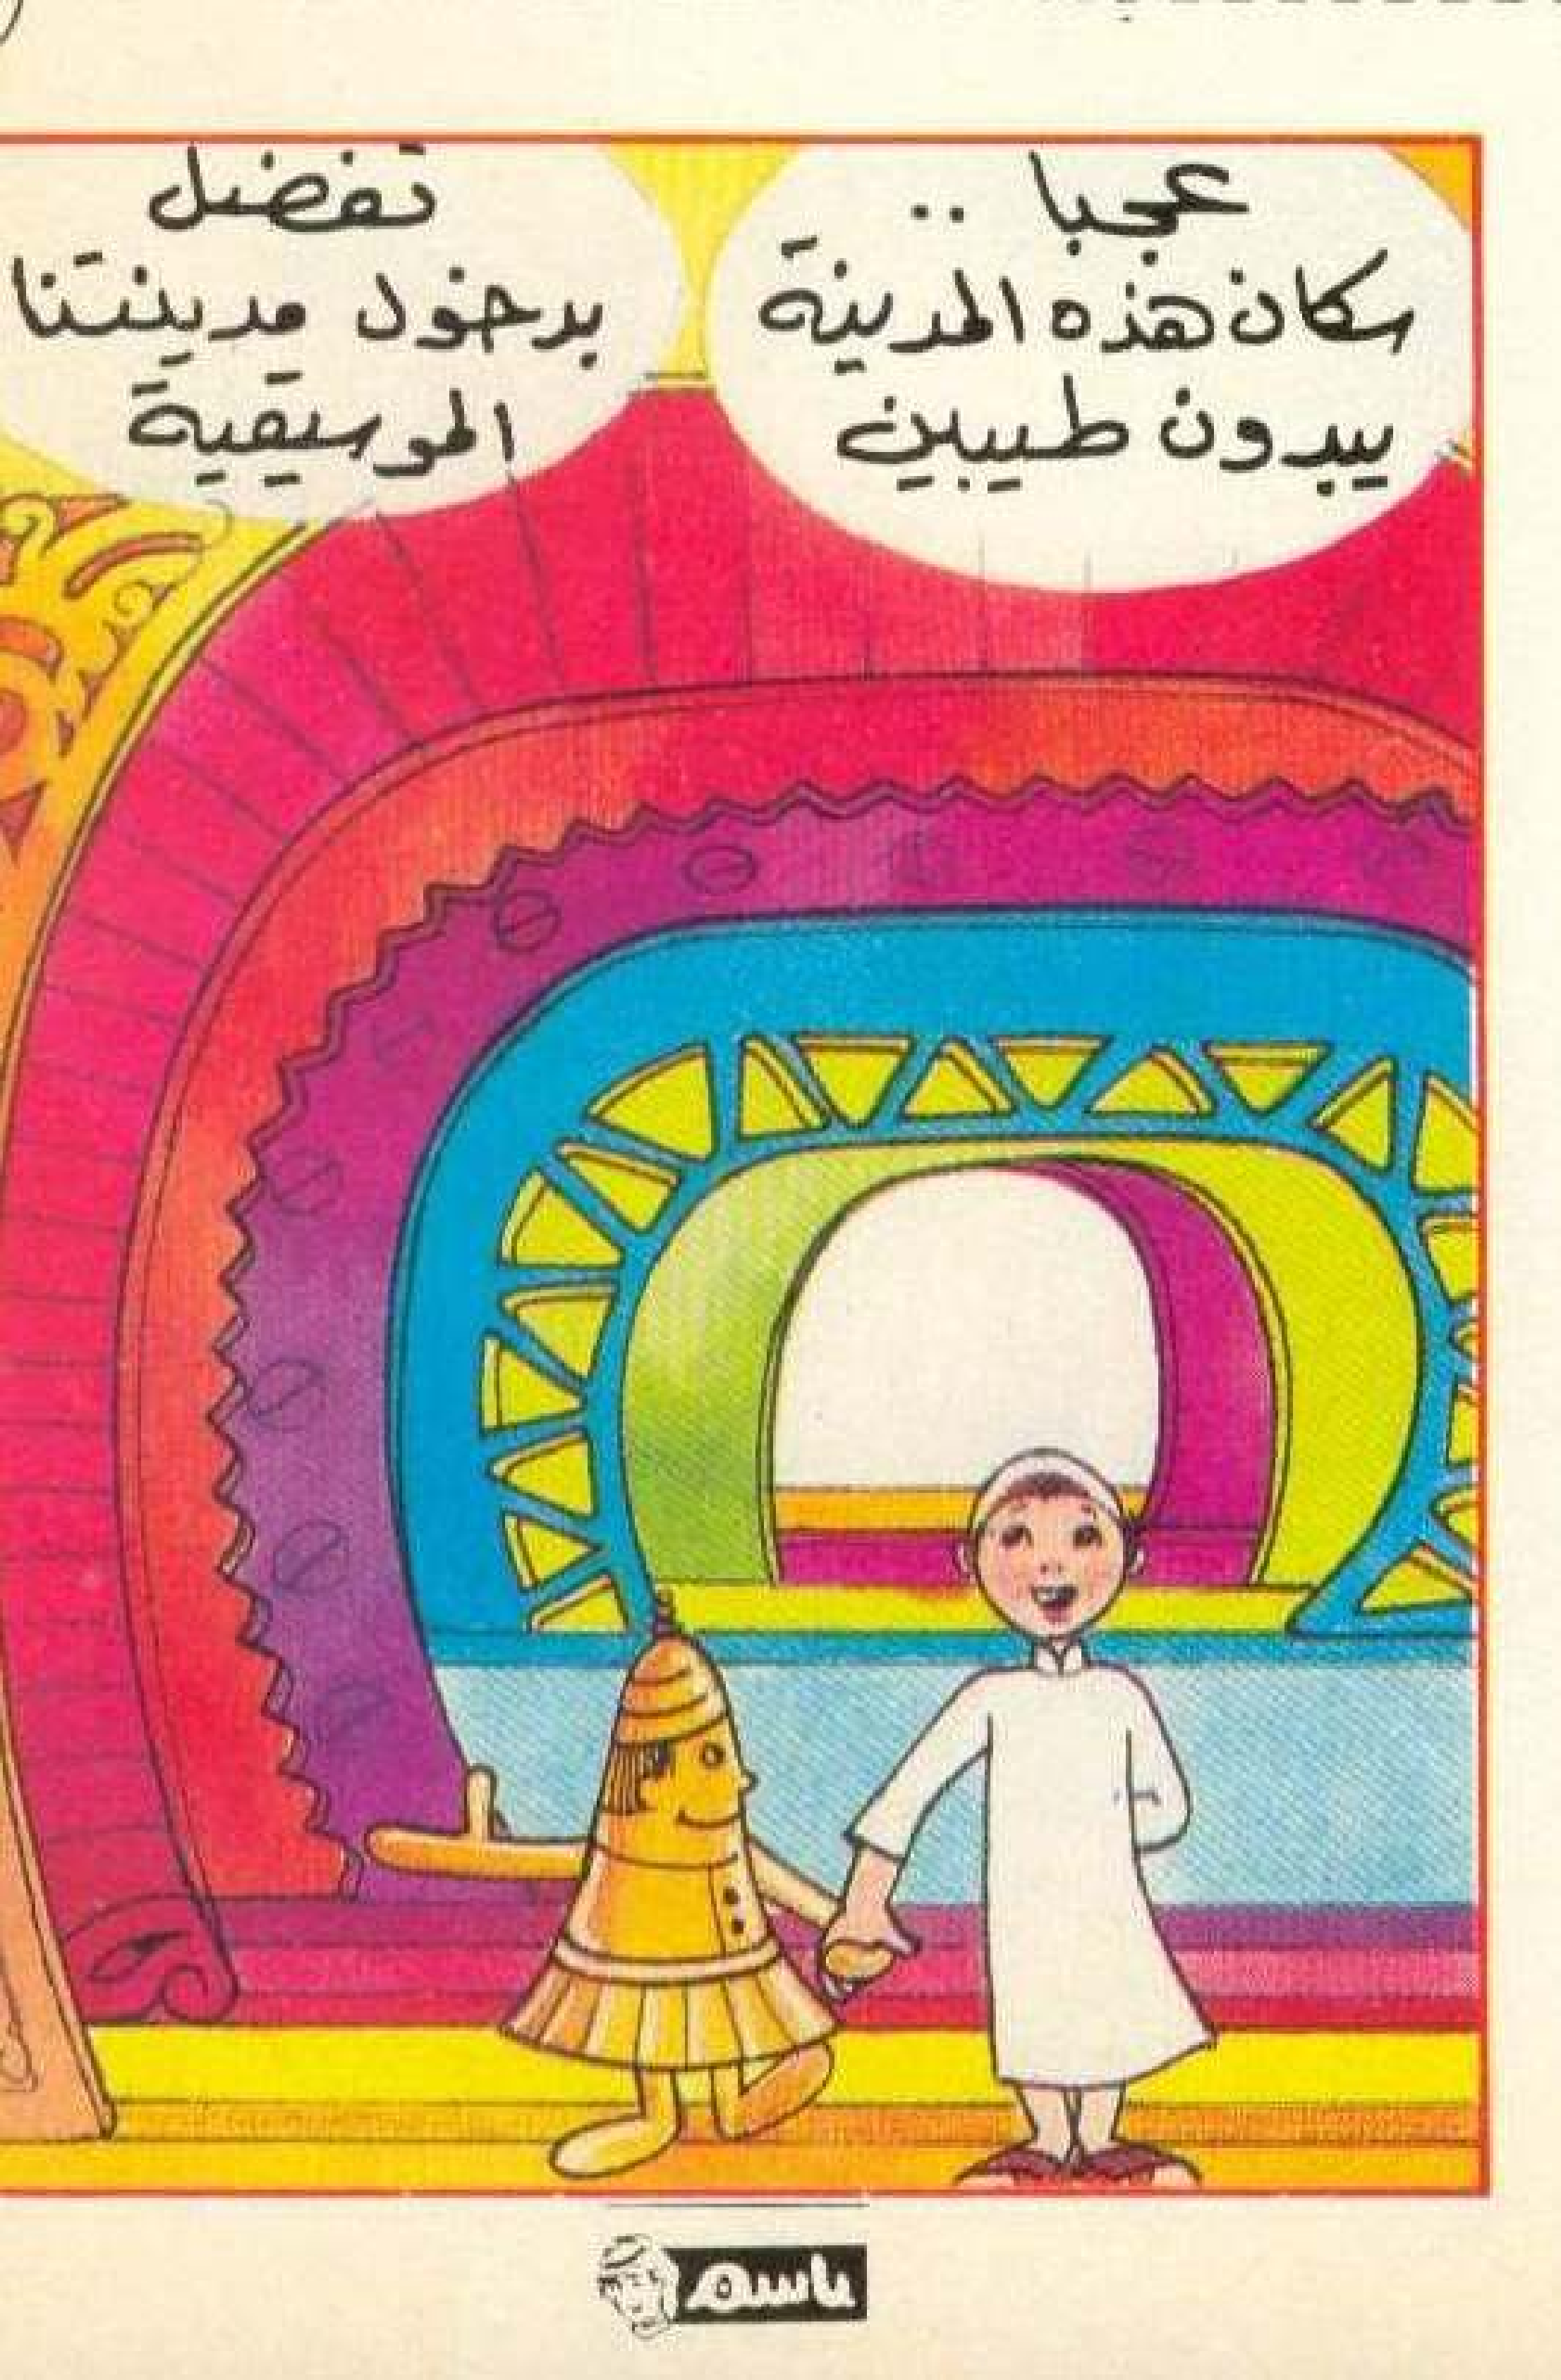 عجبا ..
سكان هذه المدينة
يبدون طيبين
تفضل
بدخول مدينتنا
الموسيقية
باسم